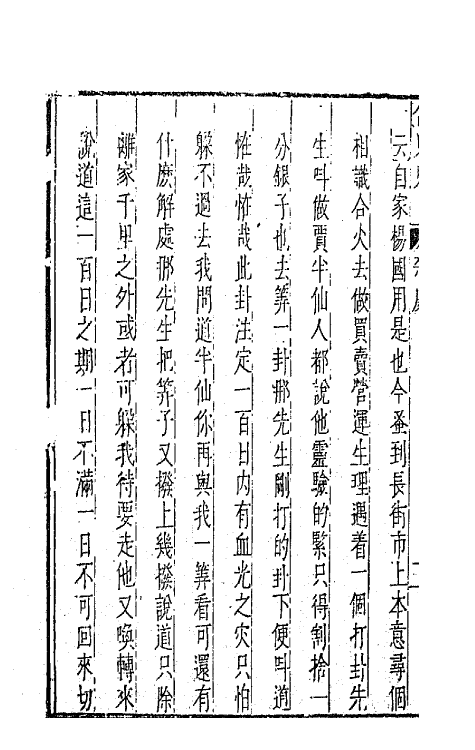 云自家楊國用是也今蚤到長街市上本意尋個
相識合火去做買賣營運生理遇着一個打卦先
生呌做賈半仙人都說他靈驗的緊只得割捨一
分銀子也去筭一卦那先生剛打的卦下便呌道
怪哉怪哉此卦注定一百日內有血光之災只怕
躱不過去我問道半仙你再與我一筭看可還有
什麽解處那先生把筭子又撥上幾撥說道只除
離家千里之外或者可躱我待要走他又喚轉來
說道這一百日之期一日不滿一日不可回來切